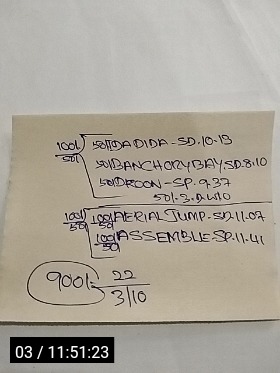 100/ 50/DADIDA-SD.10.15
50/ 50/BANCHORYBAY.SD.8.10
50/DROON-SP.9.37
50/.3.D.4.10
100/ 100/AERIAL JUMP-SD.11.07
50/ 100/ASSEMBLE.SP.11.41
900/- 22
3/10
03 / 11:51:23